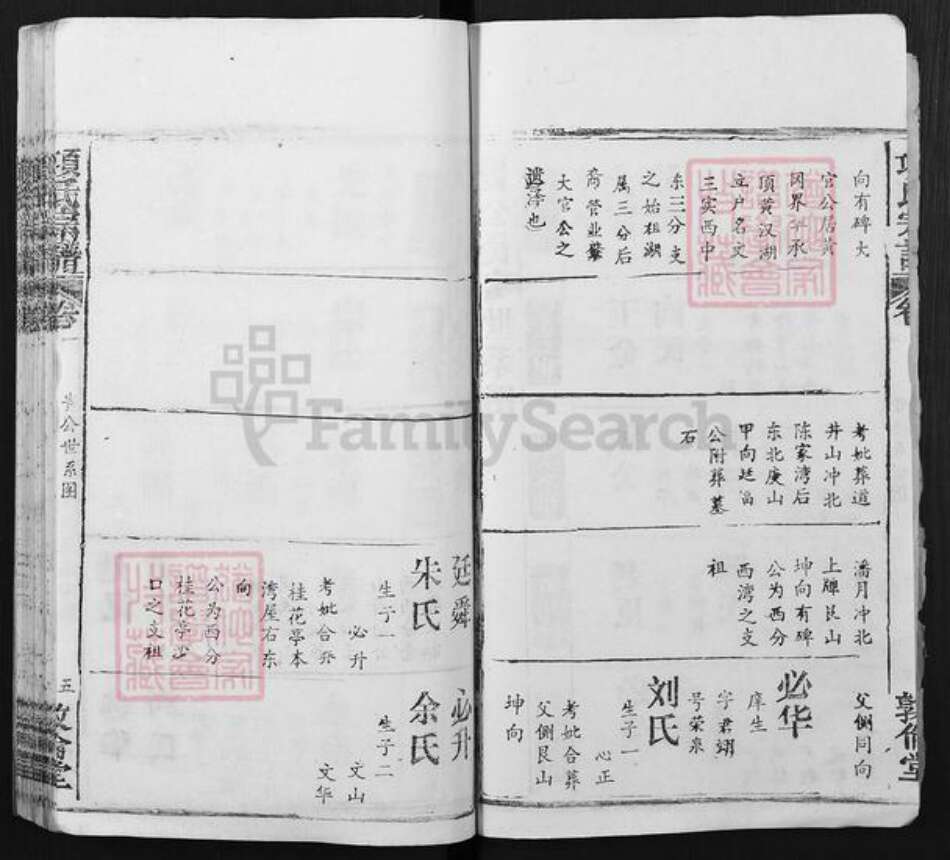 向有碑大
官公居黄
冈界斗承
顶黄汉湖
立户名文
三实西中
东三分支
之始祖湖
属三分后
裔管业
大官公之
遗泽也
考妣葬道
井山冲北
陈家湾后
东北庚山
甲向廷
公附葬墓
石
潘月冲北
上牌艮山
坤向有碑
公为西分
西湾之支
祖
父侧同向
必华
庠生
字君翊
号荣泉
刘氏
生子一
心正
考妣合葬
父侧艮山
坤向
敦伦堂
FamilySearch
廷舜
朱氏
生子一
必升
考妣合葬
桂花亭本
湾屋右东
向
公为西分
桂花亭
口之支祖
必升
余氏
生子二
文山
文华
項氏宗譜
卷一
公世系图
五
敦倫堂